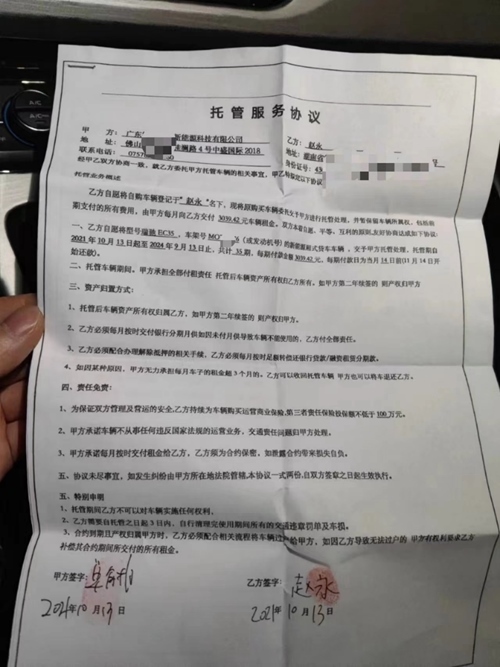 托管服务协议
甲 方：广东 新能源科技有限公司 乙方：赵永
地 址：佛山 路4号中盛国际2018 湖南省
联系电话：0757 身份证号：43
经甲乙双方协商一致，就乙方委托甲方托管车辆的相关事宜，
托管业务概述
乙方自愿将自购车辆登记于“赵永”名下，现将原购买车辆委托
期支付的所有费用，由甲方每月向乙方交付 3039.42元车辆租金。双方本着自愿、平等、互利的原则友好协商达成如下协议：
一、乙方自愿将型号瑞驰 EC35，
2021年10月13日起至2024年9月13日止，共计35期，每期付款金额3039.42元，每期付款日为当月14日前（11月14开
始还款）。
二、托管车辆期间，甲方承担全部付租责任 托管后车辆资产所有权归乙方所有。如甲方第二年续签的 则产权归甲方
三、资产归置方式：
1、托管后车辆资产所有权归属乙方，如甲方第二年续签的 则产权归甲方。
2、乙方必须每月按时交付银行分期月供如因未付月供导致车辆不能使用的，乙方付全部责任。
3、乙方必须配合办理解除抵押的相关手续，乙方必须每月按时足额转偿还银行贷款/融资租赁分期款。
4、如因某种原因，甲方无力承担每月车子的租金超3个月的，乙方可以收回托管车辆 甲方也可以将车退还乙方。
四、责任免责：
1、为保证双方管理及营运的安全，乙方持续为车辆购买运营商业保险，第三者责任保险投保额不低于100万元。
2、甲方承诺车辆不从事任何违反国家法规的运营业务，交通责任问题归甲方处理。
3、甲方承诺每月按时交付租金给乙方，乙方须为合约保密，如泄露合约带来损失自负。
五、协议未尽事宜，如发生纠纷由甲方所在地法院管辖，本协议一式两份，自双方签章之日起生效执行。
五、特别申明
1、托管期间乙方不可以对车辆实施任何权利，
2、乙方需要自托管之日起3日内、自行清理完使用期间所有的交通违章罚单及车损。
3、合约到期且产权归属甲方时，乙方必须配合相关流程将车辆过户给甲方，如因乙方导致无法过户的 甲方有权利要求乙方
补偿其合约期间所交付的所有租金。
甲方签字： 乙方签字：赵永
2021年10月13日 2021年10月13日